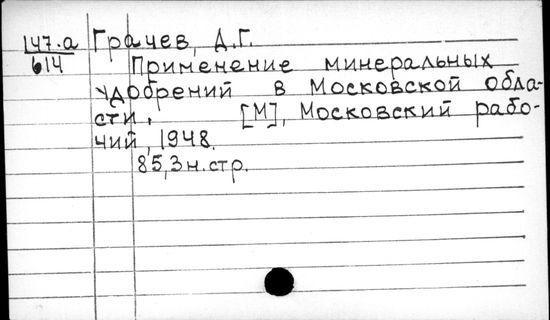 147.а Грачев, Д.Г.
614 Применение минеральных
удобрений в Московской обла-
сти. [М], Московский рабо-
чий, 1948.
85,3н.стр.